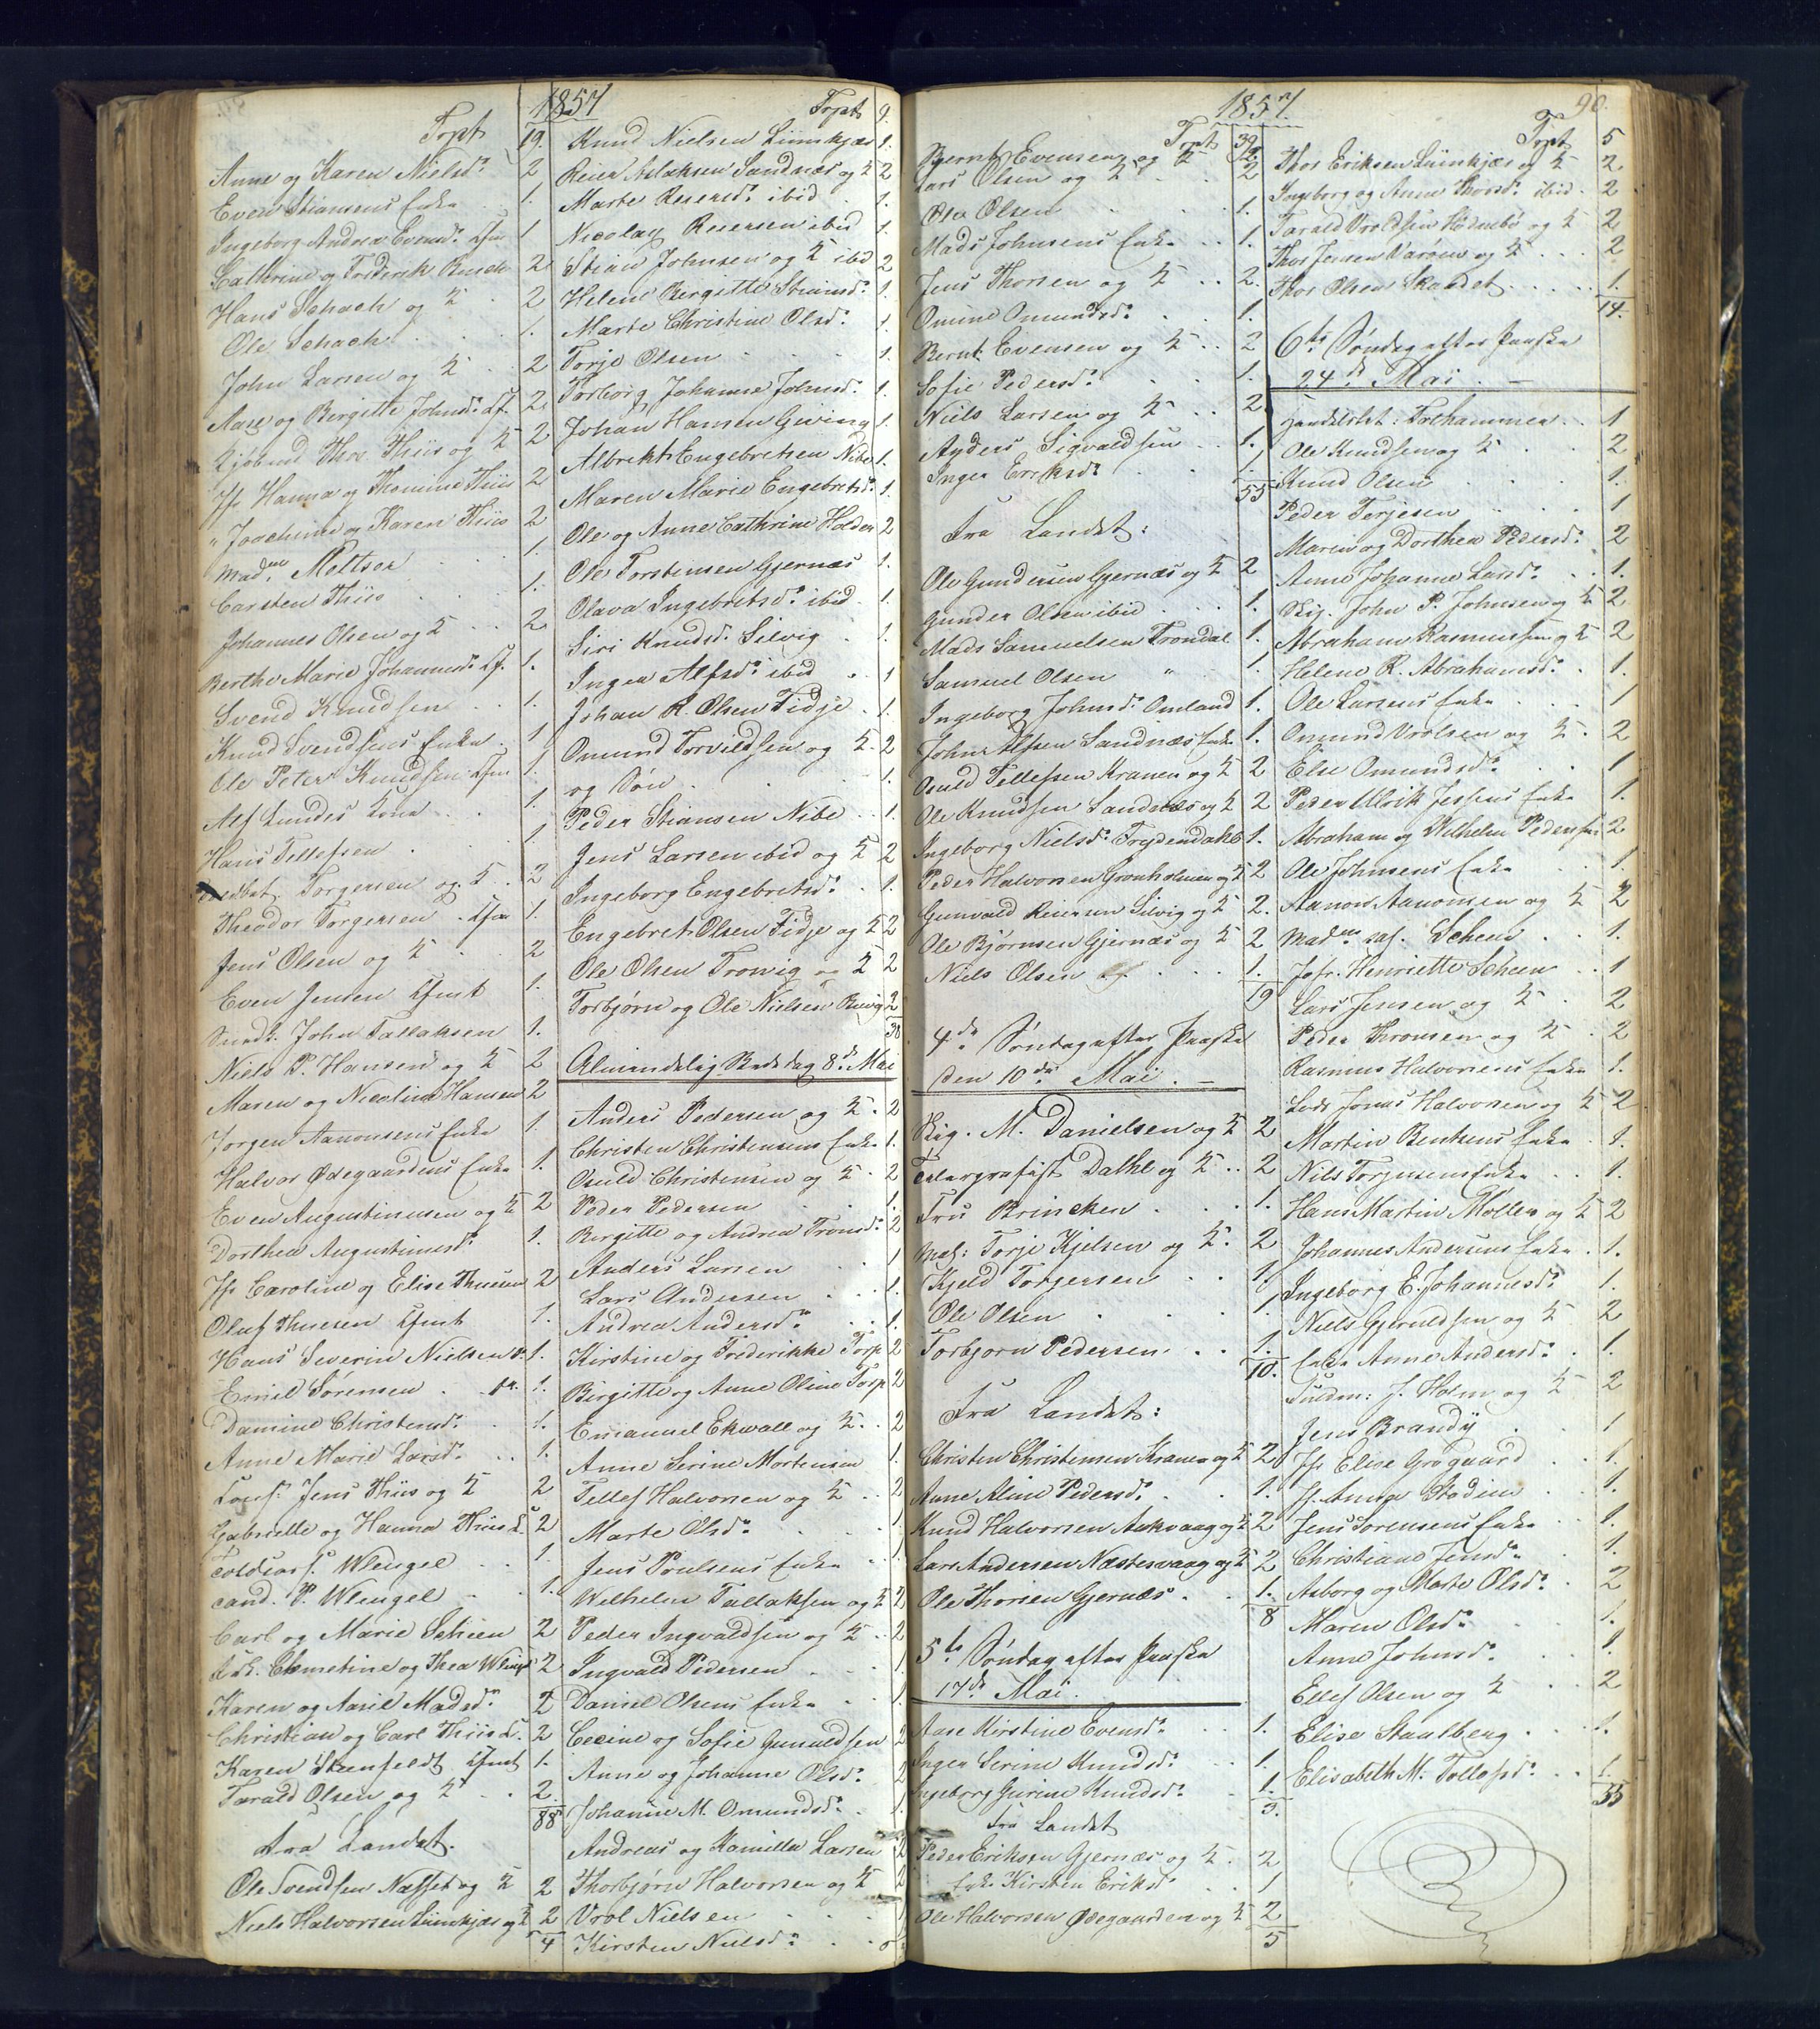 1857
Trpt 19.
Anne og Karen Nielsdr 2
Even Stiansens Enke 1.
Ingeborg Andrea Evensdr Cfm 1
Cathrine og Frederik Busch 2
Hans Schach og K 2
Ole Schach 1.
John Larsen og K 2
Aase og Birgitte Johnsdr Cf. 2
Kjøbmd Thor Thiis og K 2
Jfr Hanna og Thomine Thiis 2
" Joachime og Karen Thiis 2
Madme Meltser 1.
Carsten Thiis 1.
Johannes Olsen og K 2
Berthe Marie Johannesdr Cf. 1.
Svend Knudsen 1.
Knud Svendsens Enke 1
Ole Peter Knudsen Cfm 1.
Alf Lundes Kone 1.
Hans Tellefsen 1.
Torgersen og K. 2
Theodor Torgersen Cfm 1.
Jens Olsen og K 2
Even Jensen Cfmt 1.
Snedk. John Tallaksen 1.
Niels P. Hansen og K 2
Maren og Nicoline Hansen 2
Jørgen Aanonsens Enke 1
Halvor Ødegaardens Enke 1.
Even Augustinusen og K 2
Dorthea Augustinusdr 1.
Jfr Caroline og Elise Thuesen 2
Oluf Thuesen Cfmt 1.
Hans Severin Nielsen 1.
Emil Sørensen 1.
Damine Christensdr 1.
Anne Marie Larsdr 1.
Cons. Jens Thiis og K 2
Gabrielle og Hanna Thiis C. 2
Toldcass. Wleugel 1
cand. P. Wleugel 1.
Carl og Marie Schien 2
Clementine og Thea Wleugel 2
Karen og Aasil Madsdr 2
Christian og Carl Thiis C. 2
Karen Steenfeldt Cfmt 1.
Tarald Olsen og K 2.
88
Fra Landet.
Ole Svendsen Næsset og K 2
Niels Halvorsen Liinkjær og K 2
4
Trpt 9.
Knud Nielsen Liinkjær 1.
Reier Aslaksen Sandnæs og K 2
Marte Reiersdr ibid 1.
Nicolay Reiersen ibid 1
Stian Johnsen og K ibid 2
Helene Birgitte Stiansdr 1.
Marte Christine Olsdr 1.
Torje Olsen 1.
Torborg Johanne Johnsdr 1.
Johan Hansen Gwing 1.
Albrekt Engebretsen Nibe 1.
Maren Marie Engebretsdr 1.
Ole og Anne Cathrine Holden 2
Ole Torstensen Gjernæs 1.
Olava Ingebretsdr ibid 1.
Siri Knudsdr Silvig 1.
Inger Alfsdr ibid 1
Johan R. Olsen Fidje 1.
Omund Torvildsen og K 2
og Søn 1.
Peder Stiansen Nibe 1.
Jens Larsen ibid og K 2
Ingeborg Engebretsdr 1.
Engebret Olsen Fidje og K 2
Ole Olsen Tronvig og K 2
Torbjørn og Ole Nielsen 2
38
Almindelig Bededag 8de Mai
Anders Pedersen og K 2
Christen Christensens Enke 1.
Osuld Christensen og K 2
Peder Pedersen 1.
Birgitte og Andrea Tronsdr 2
Anders Larsen 1
Lars Andersen 1.
Andrea Andersdr 1.
Kirstine og Frederikke Torp 2
Birgitte og Anne Oline Torp 2
Emanuel Ekwall og K 2
Anne Serine Mortensen 1.
Tellef Halvorsen og K 2
Marte Olsdr 1
Jens Poulsens Enke 1
Wilhelm Tallaksen og K 2
Peder Ingvaldsen og K 2
Ingvald Pedersen 1
Daniel Olsens Enke 1
Cecine og Sofie Gunuldsen 2
Anne og Johanne Olsdr 2
Johanne M. Omundsdr 1
Andreas og Kamilla Larsen 2
Thorbjørn Halvorsen og K 2
Vrol Nielsen 1
Kirsten Nielsdr
1857. 90.
Trpt 39
Bernt Evensen og K 2
Lars Olsen og K 2
Ole Olsen 1.
Mads Johnsens Enke 1.
Jens Thorsen og K 2.
Omine Omundsdr 1.
Bernt Evensen og K 2
Sofie Pedersdr 1.
Niels Larsen og K 2
Anders Sigvaldsen 1.
Inger Eriksdr 1.
55
Fra Landet:
Ole Gundersen Gjernæs og K 2
Gunder Olsen ibid 1.
Mads Samuelsen Trondal 1.
Samuel Olsen " 1.
Ingeborg Johnsdr Omland 1.
John Alfsen Sandnæs Enke 1.
Osuld Tellefsen Kranen og K 2
Ole Knudsen Sandnæs og K 2
Ingeborg Nielsdr Frydendahl 1.
Peder Halvorsen Grønholmen og K 2
Gunvald Reiersen Silvig og K 2.
Ole Bjørnsen Gjernæs og K 2
Niels Olsen 1.
19
4de Søndag efter Paaske
den 10de Mai.
Skig. M. Danielsen og K 2
Telegrafist Dahl og K 2
Fru Brincken 1.
Mas: Torje Kjelsen og K 2
Kjeld Torgersen 1.
Ole Olsen 1
Torbjørn Pedersen 1.
10.
Fra Landet:
Christen Christensen Kranen og K 2
Anne Aline Pedersdr 1.
Knud Halvorsen Askvaag og K 2
Lars Andersen Næstesvaag og K 2
Ole Thorsen Gjernæs 1.
8
5te Søndag efter Paaske
17de Mai.
Aase Kirstine Evensdr 1.
Inger Serine Knudsdr 1.
Ingeborg Gurine Knudsdr 1.
3.
Fra Landet
Peder Eriksen Gjernæs og K 2
Enke Kirsten Eriksdr 1
Ole Halvorsen Ødegaarden og K 2
5
Trpt 5
Thor Eriksen Liinkjær og K 2
Ingeborg og Anne Thorsdr ibid. 2
Tarald Vroldsen Hødnebø og K 2
Thor Jensen Varøen og K 2
Thor Olsen Skaadet 1.
14.
6te Søndag efter Paaske
24de Mai.
Handelsbt: Folkammer 1
Ole Knudsen og K 2
Knud Olsen 1.
Peder Terjesen 1
Maren og Dorthea Pedersdr 2
Anne Johanne Larsdr 1.
Skig. John P. Johnsen og K 2
Abraham Rasmussen og K 2
Helene R. Abrahamsdr 1.
Ole Larsens Enke 1
Omund Vrolsen og K 2
Else Omundsdr 1
Peder Ulrik Jessens Enke 1.
Abraham og Wilhelm Pedersen 2
Ole Johnsens Enke 1.
Aanon Aanonsen og K 2
Madme sal. Scheen 1.
Jofr. Henriette Scheen 1
Lars Jensen og K 2
Peder Thronsen og K 2
Rasmus Halvorsens Enke 1.
Lods Jonas Halvorsen og K 2
Martin Bentsens Enke 1.
Nils Torjusens Enke 1.
Hans Martin Møller og K 2
Johannes Andersens Enke 1.
Ingeborg E. Johannesdr 1.
Niels Gjeruldsen og K 2
Enke Anne Andersdr 1.
Guldm: J. Holm og K 2
Jens Brandy 1
Jfr Elise Grøgaard 1.
Jf. Anna Stadin 1.
Jens Sørensens Enke 1.
Christiane Jensdr 1.
Aaborg og Marte Olsdr 2
Maren Olsdr 1.
Anne Johnsdr 1.
Ellef Olsen og K 2
Elise Staalberg 1.
Elisabeth M. Tollefsdr 1.
55